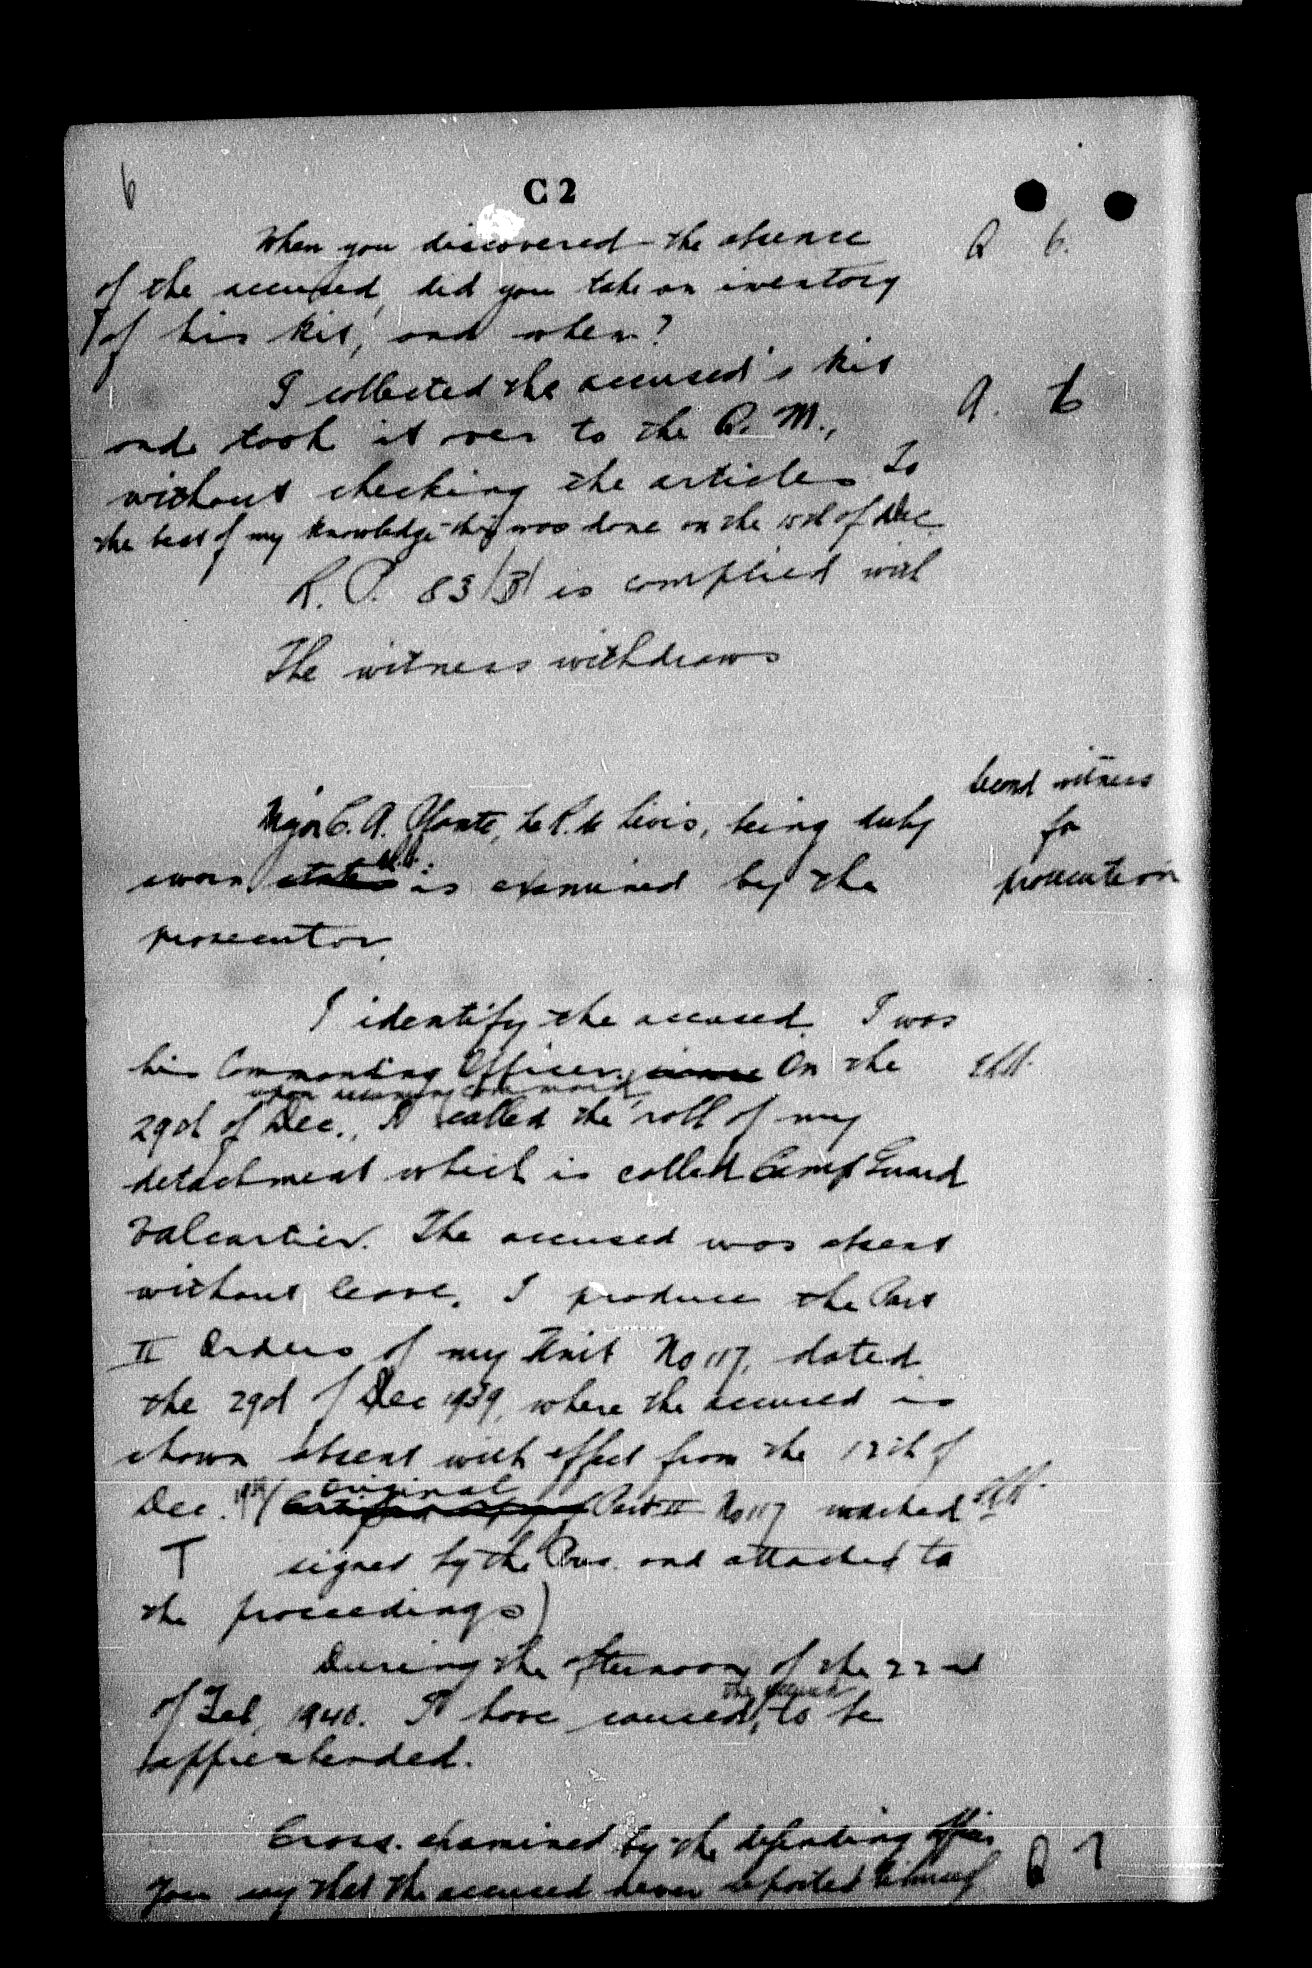 6
C 2
When you discovered the absence Q 6.
of the accused, did you take an inventory
of his kit, and when?
I collected the accused's kit
and took it over to the Q. M., A. 6
without checking the articles. To
the best of my knowledge this was done on the 15th of Dec.
R. P. 83 (B) is complied with
The witness withdraws
Second witness
Major C. A. le R. de Levis, being duly for
sworn states is examined by the prosecution
prosecutor.
I identify the accused. I was
his Commanding Officer. since On the
upon assuming command
29th of Dec., I called the roll of my
detachment which is called Camp Guard
Valcartier. The accused was absent
without leave. I produce the Part
II Orders of my Unit No 117, dated
the 29th of Dec 1939, where the accused is
shown absent with effect from the 12th of
original
Dec. 1939 (Certified copy of Part II No 117 marked
T signed by the Pres. and attached to
the proceedings)
During the afternoon of the 22nd
the accused
of Feb. 1940. I have caused, to be
apprehended.
Cross-examined by the defending officer
You say that the accused never reported himself Q 7